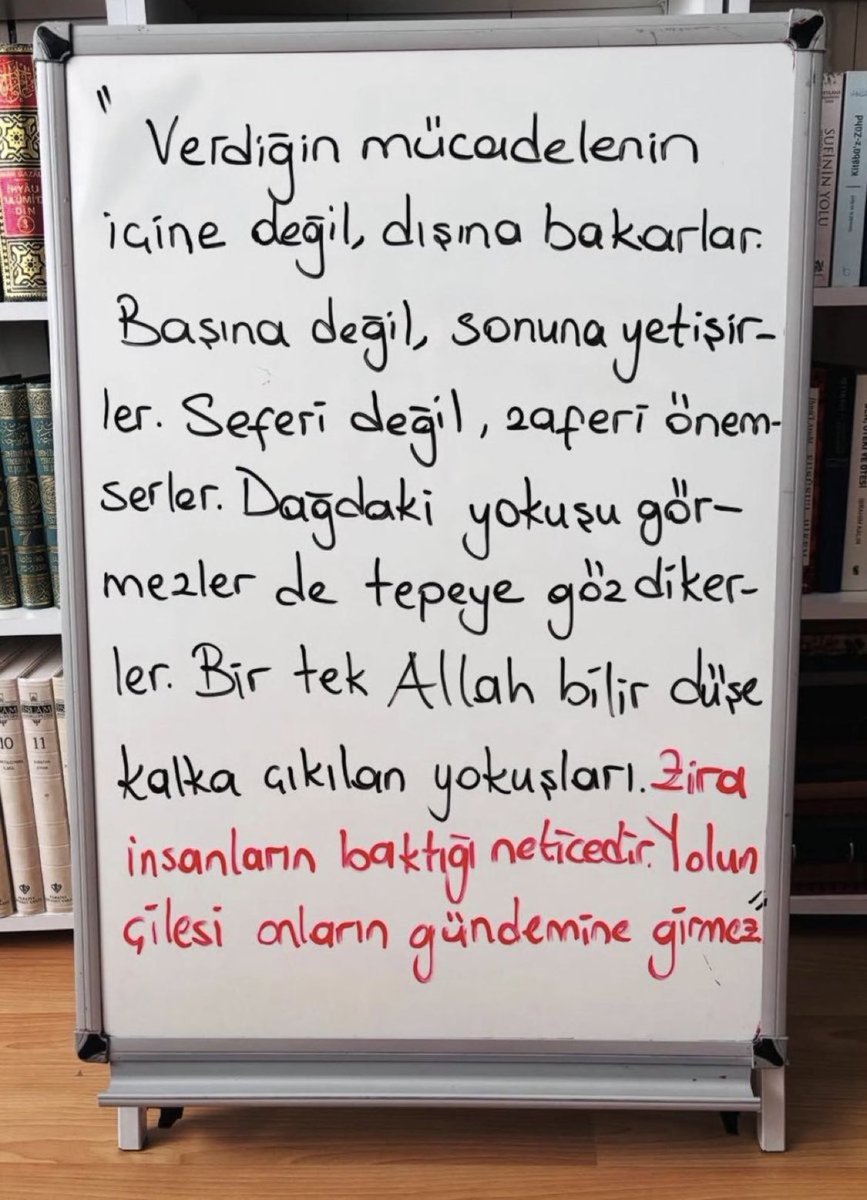 "Verdiğin mücadelenin
içine değil, dışına bakarlar.
Başına değil, sonuna yetişir-
ler. Seferi değil, zaferi önem-
serler. Dağdaki yokuşu gör-
mezler de tepeye göz diker-
ler. Bir tek Allah bilir düşe
kalka çıkılan yokuşları. Zira
insanların baktığı neticedir. Yolun
çilesi onların gündemine girmez"
İHYÂU
DİN
3
7
10
11
SUFİNİN YOLU
Kitâbü'z-Zühd